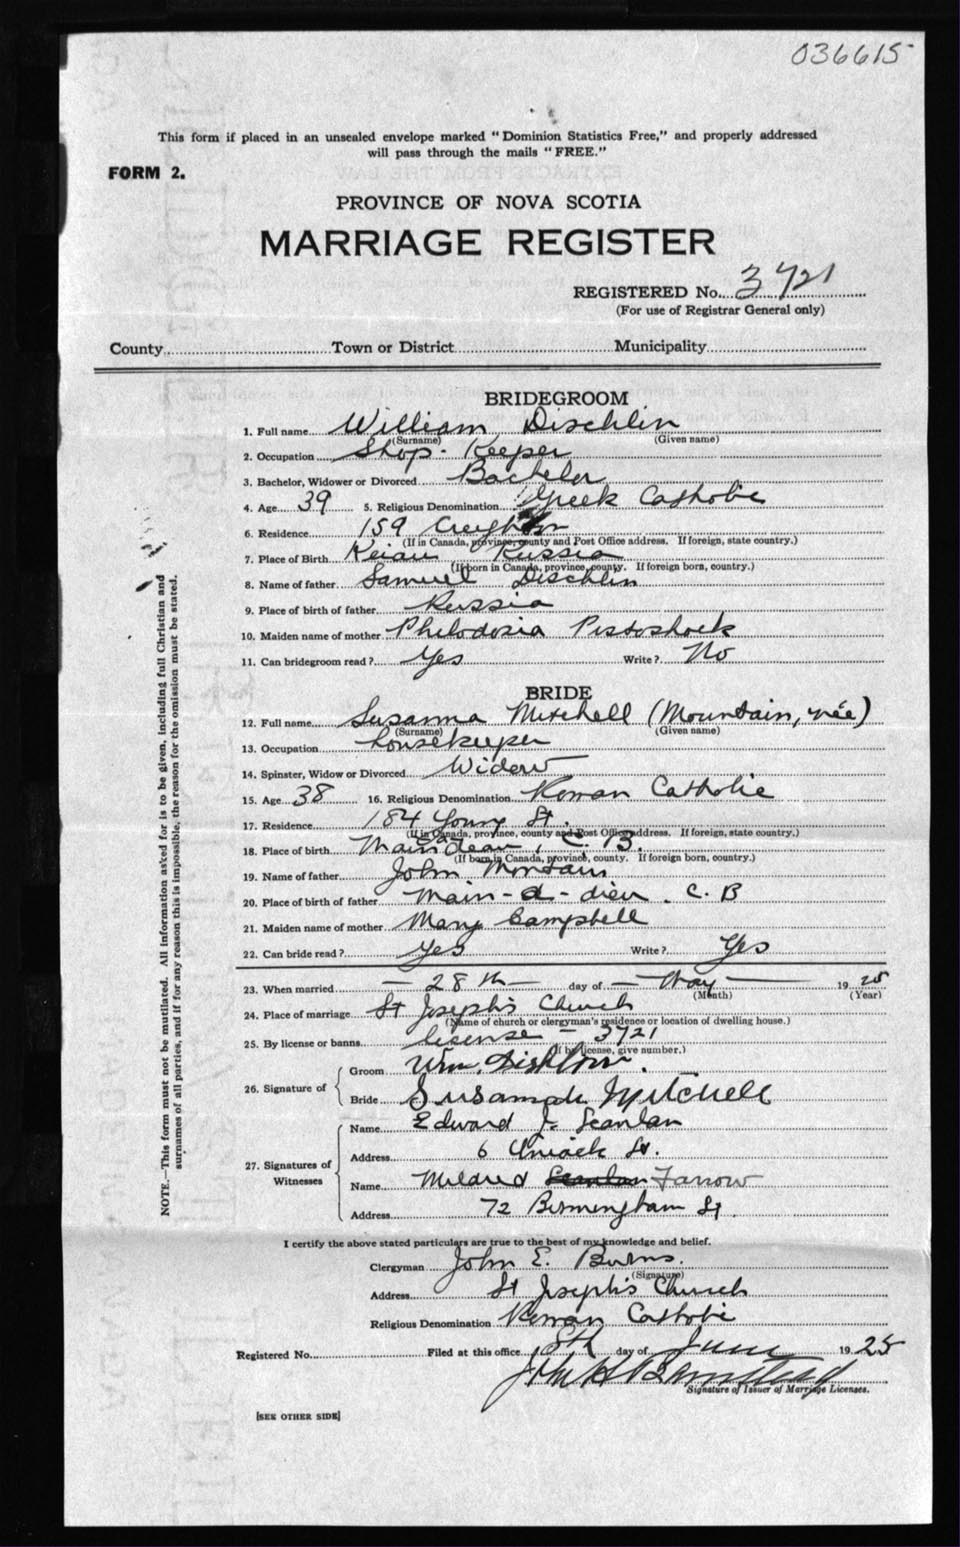 036615
This form if placed in an unsealed envelope marked "Dominion Statistics Free," and properly addressed
will pass through the mails "FREE."
FORM 2.
PROVINCE OF NOVA SCOTIA
MARRIAGE REGISTER
REGISTERED No. 3721
(For use of Registrar General only)
County Town or District Municipality
BRIDEGROOM
1. Full name William Dischlin
(Surname) (Given name)
2. Occupation Shop-Keeper
3. Bachelor, Widower or Divorced Bachelor
4. Age 39 5. Religious Denomination Greek Catholic
6. Residence 159 Creighton
(If in Canada, province, county and Post Office address. If foreign, state country.)
7. Place of Birth Russia
(If born in Canada, province, county. If foreign born, country.)
8. Name of father Samuel Dischlin
9. Place of birth of father Russia
10. Maiden name of mother Philodosia
11. Can bridegroom read? Yes Write? No
BRIDE
12. Full name Susanna Mitchell (Mountain, née)
(Surname) (Given name)
13. Occupation housekeeper
14. Spinster, Widow or Divorced Widow
15. Age 38 16. Religious Denomination Roman Catholic
17. Residence 184 Young St.
(If in Canada, province, county and Post Office address. If foreign, state country.)
18. Place of birth C. B.
(If born in Canada, province, county. If foreign born, country.)
19. Name of father John Montain
20. Place of birth of father Main-a-dieu. C. B
21. Maiden name of mother Mary Campbell
22. Can bride read? Yes Write? Yes
23. When married 28th day of May 1925
(Month) (Year)
24. Place of marriage St Joseph's Church
(Name of church or clergyman's residence or location of dwelling house.)
25. By license or banns license - 3721
(If by license, give number.)
26. Signature of
Groom Wm.
Bride Susannah Mitchell
27. Signatures of Witnesses
Name Edward J. Scanlan
Address 6 Uniack St.
Name Mildred Scanlan Farrow
Address 72 Birmingham St.
I certify the above stated particulars are true to the best of my knowledge and belief.
Clergyman John E. Burns.
(Signature)
Address St Joseph's Church
Religious Denomination Roman Catholic
Registered No. Filed at this office 8th day of June 1925
Signature of Issuer of Marriage Licenses.
[SEE OTHER SIDE]
NOTE.—This form must not be mutilated. All information asked for is to be given, including full Christian and
surnames of all parties, and if for any reason this is impossible, the reason for the omission must be stated.